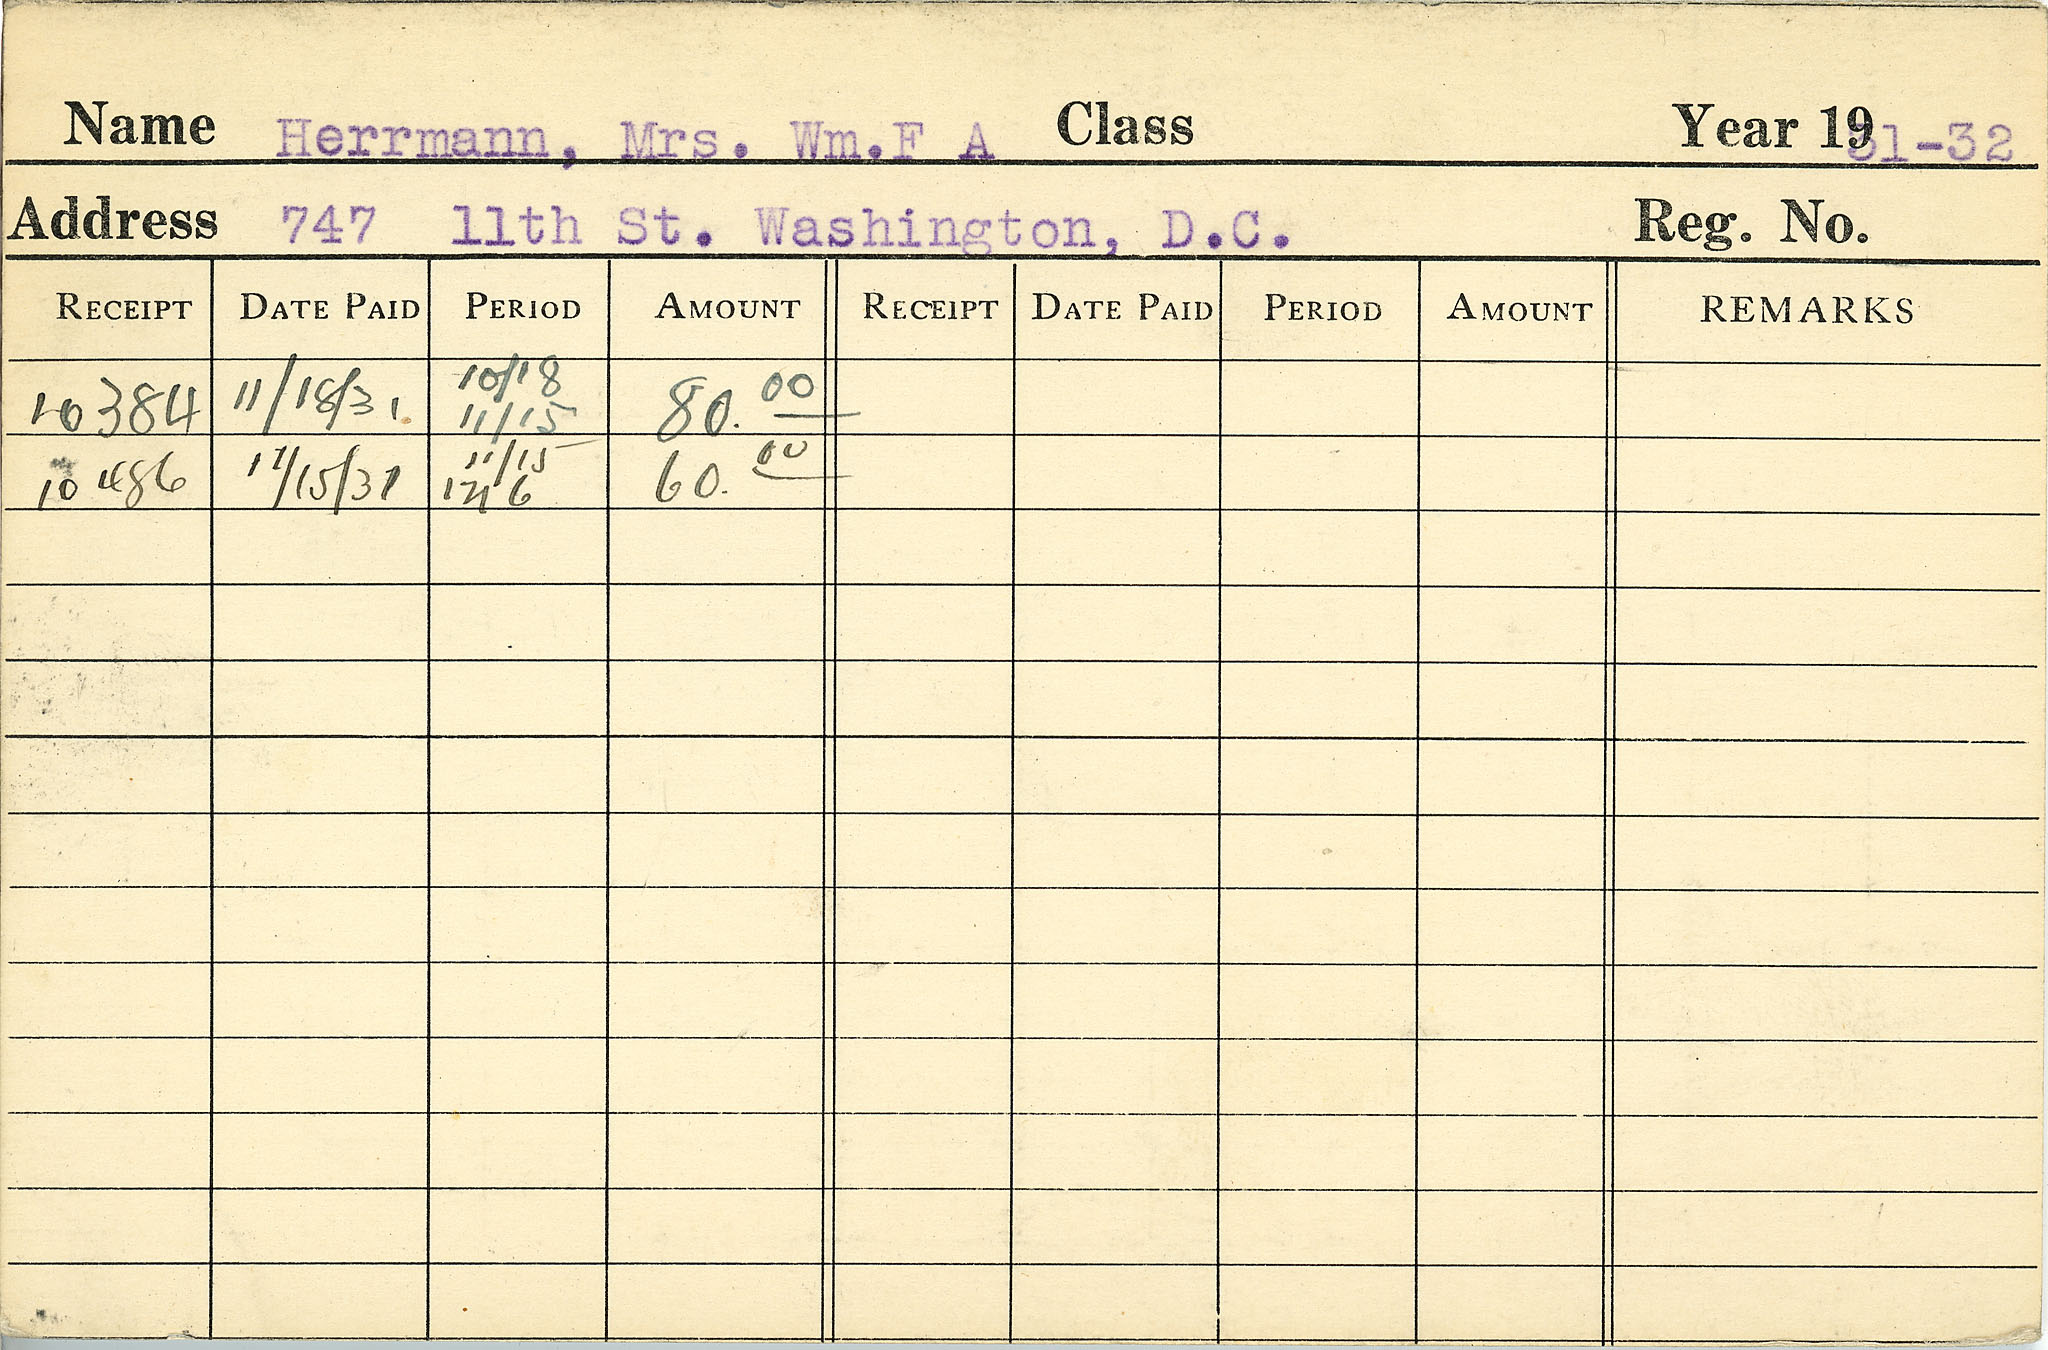 Name Herrmann, Mrs. Wm.F A Class Year 1931-32
Address 747 11th St. Washington, D.C. Reg. No.
RECEIPT DATE PAID PERIOD AMOUNT RECEIPT DATE PAID PERIOD AMOUNT REMARKS
10384 11/18/31 10/18 11/15 80.00
10486 12/15/31 11/15 60.00